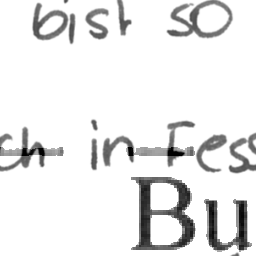 bist so
ch in Fess
Bu